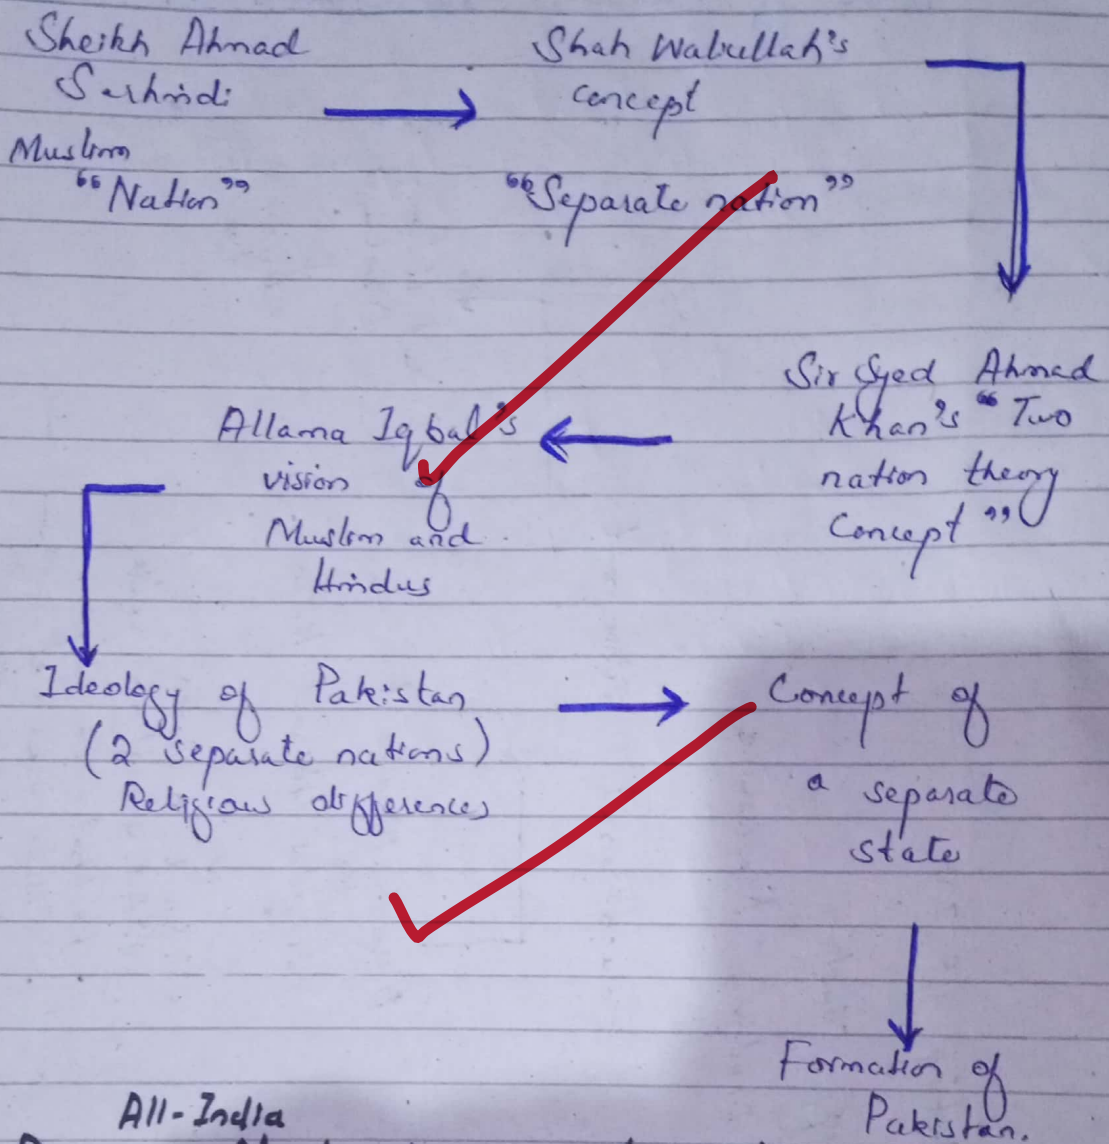 Sheikh Ahmad
Serhindi
Muslim
"Nation"
Shah Waliullah's
concept
"Separate nation"
Sir Syed Ahmad
Khan's "Two
nation theory
Concept"
Allama Iqbal's
vision of
Muslim and
Hindus
Ideology of Pakistan
(2 separate nations)
Religious differences
Concept of
a separate
state
Formation of
Pakistan.
All-India